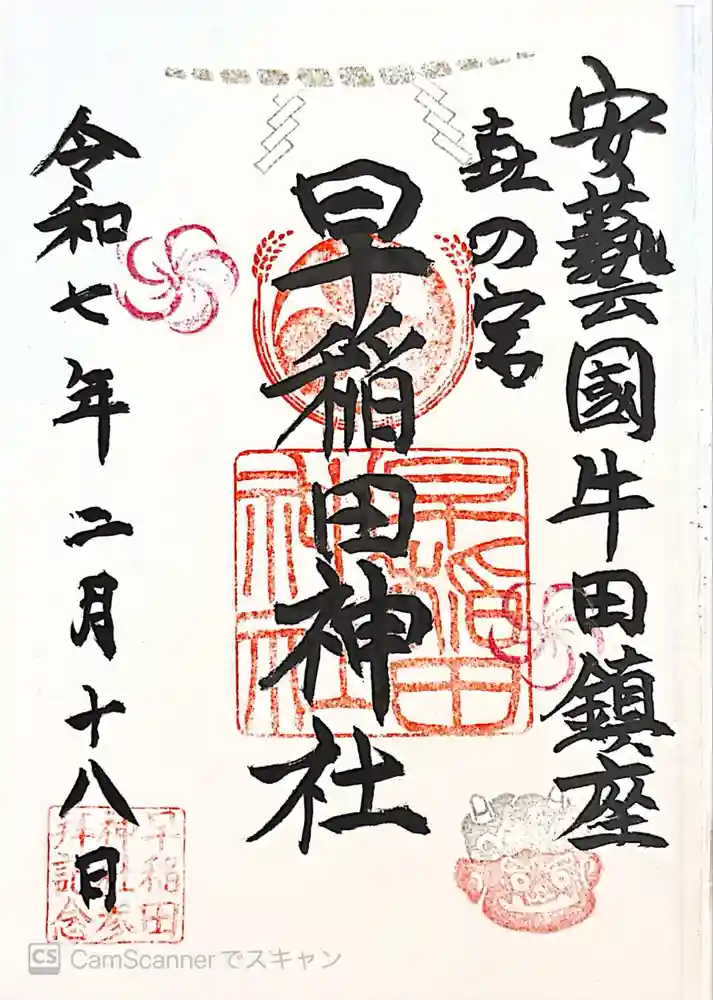 安藝國牛田鎮座
㐂の宮
早稲田神社
令和七年二月十八日
早稲田
神社
早稲田
神社参
拝記念
CS CamScannerでスキャン